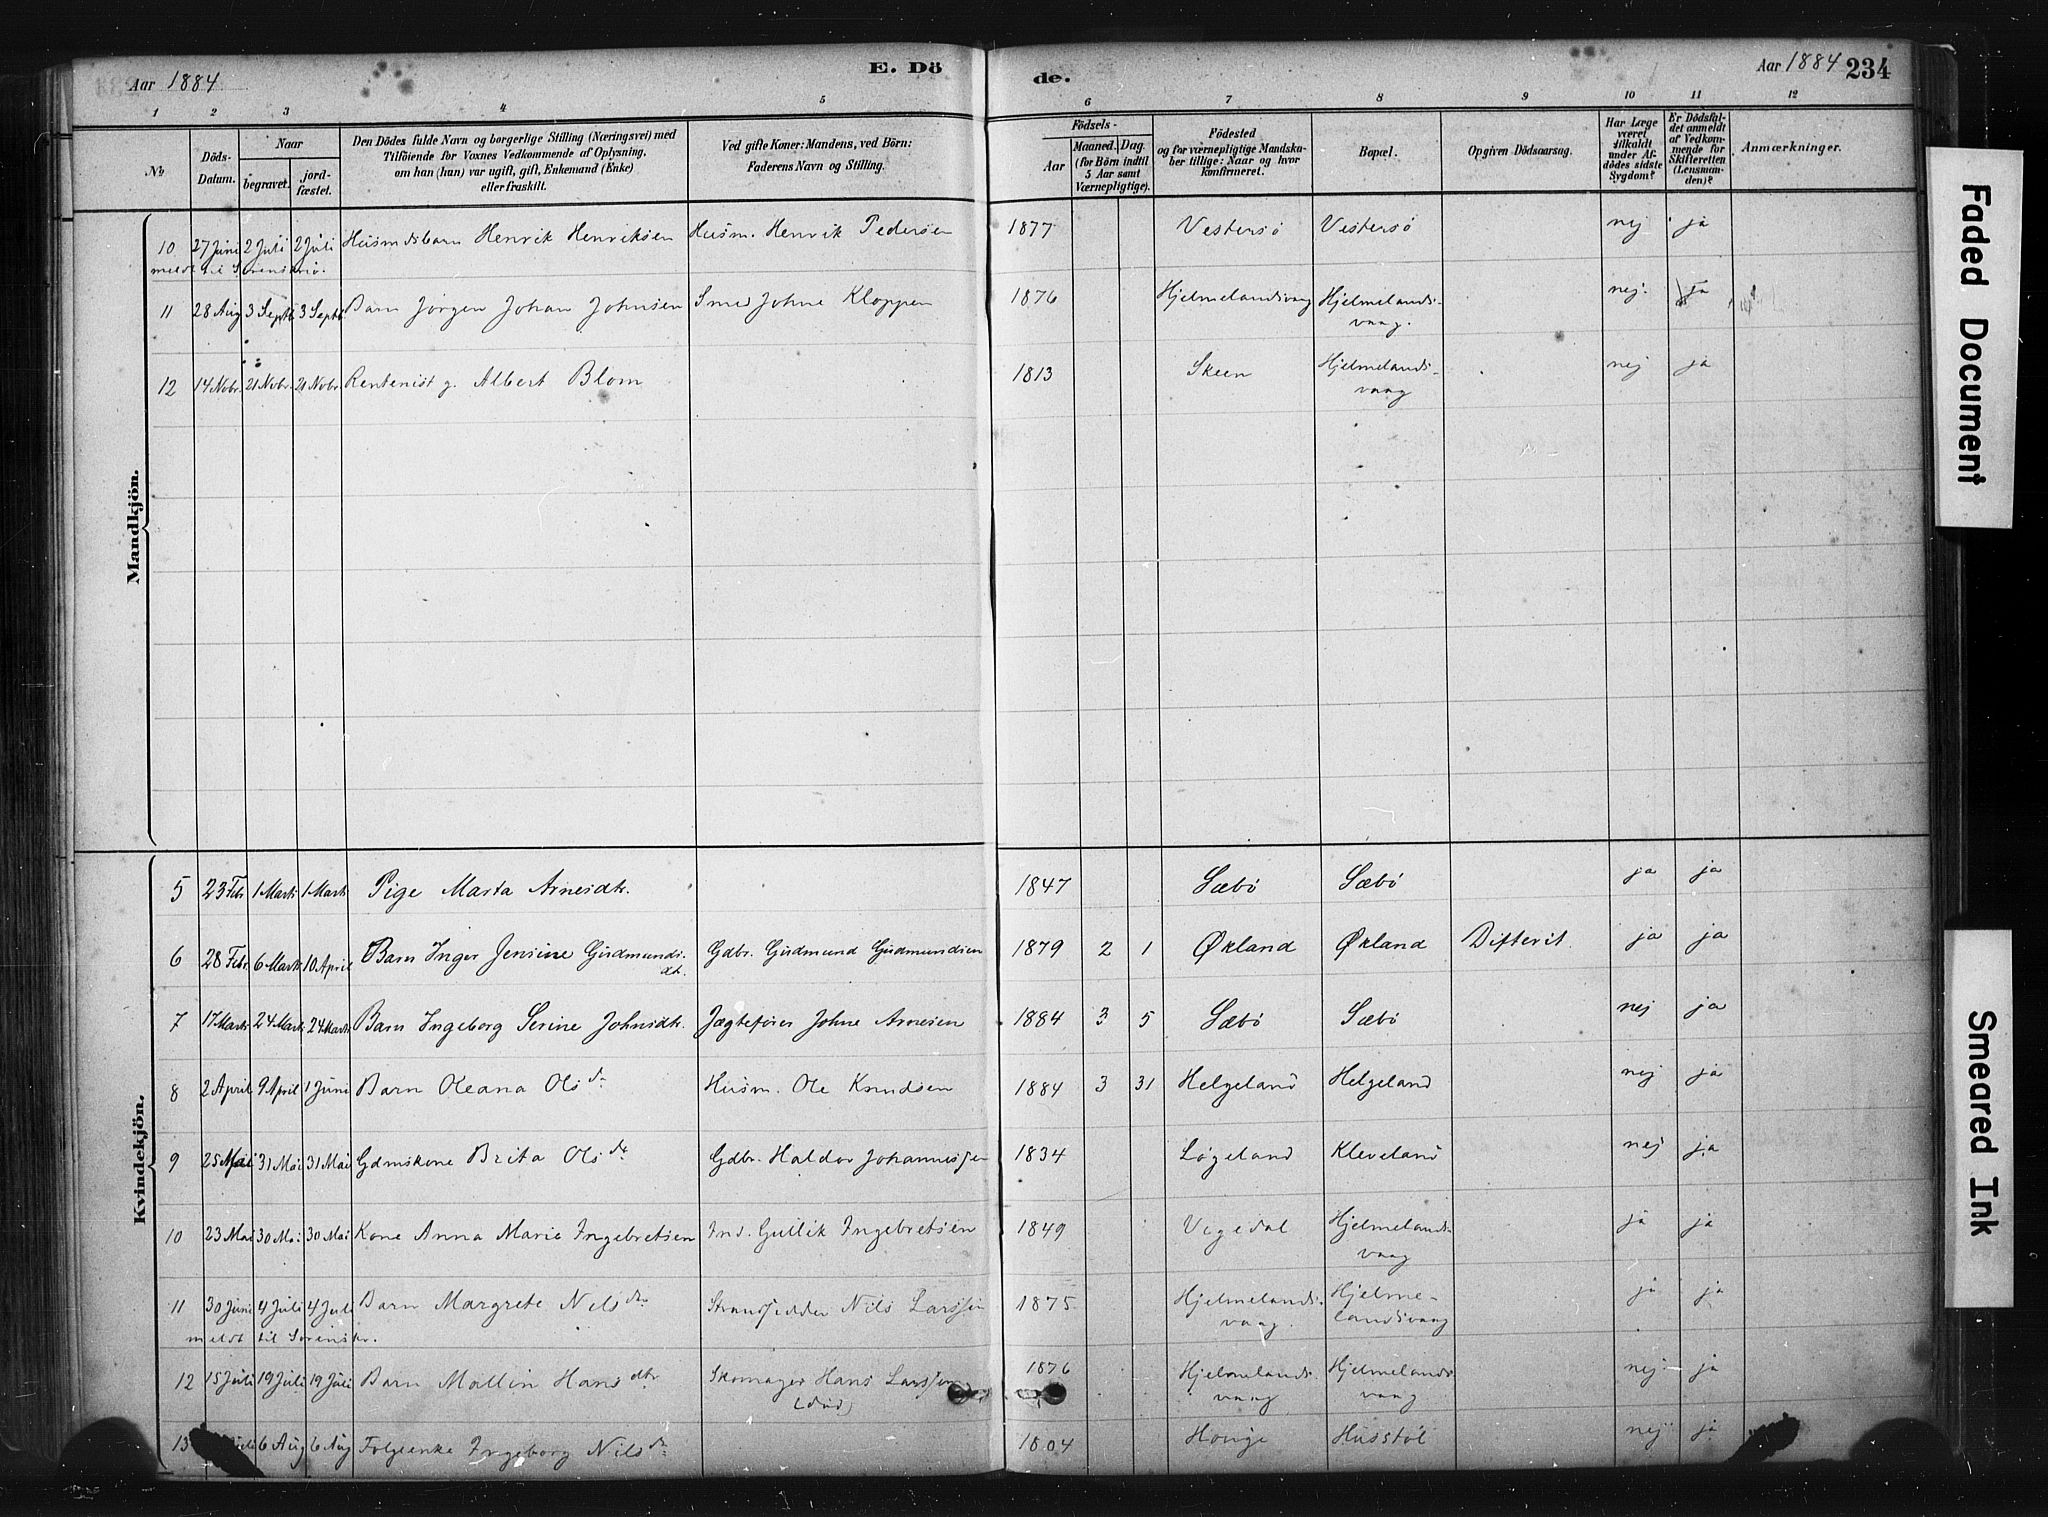 Aar 1884 E. Dö de. Aar 1884 234
1 2 3 4 5 6 7 8 9 10 11 12
№ Döds-Datum. Naar begravet. jord-fæstet. Den Dödes fulde Navn og borgerlige Stilling (Næringsvei) med Tilföiende for Voxnes Vedkommende af Oplysning, om han (hun) var ugift, gift, Enkemand (Enke) eller fraskilt. Ved gifte Koner: Mandens, ved Börn: Faderens Navn og Stilling. Födsels- Aar Maaned. Dag. (for Börn indtil 5 Aar samt Værnepligtige). Födested og for værnepligtige Mandskaber tillige: Naar og hvor konfirmeret. Bopæl. Opgiven Dödsaarsag. Har Læge været tilkaldt under Afdödes sidste Sygdom? Er Dödsfaldet anmeldt af Vedkommende for Skifteretten (Lensmanden)? Anmærkninger.
Mandkjön.
10 27 Juni 2 Juli 2 Juli Husmdsbarn Henrik Henriksen Husm. Henrik Pedersen 1877 Vestersø Vestersø nej ja
meldt til Sorenskriv.
11 28 Aug 3 Septb 3 Septb. Barn Jørgen Johan Johnsen Smed Johne Kloppen 1876 Hjelmelandsvaag Hjelmelands-
vaag. nej. ja
12 14 Nobr. 21 Nobr. 21 Nobr. Rentenist g. Albert Blom 1813 Skeen Hjelmelands-
vaag nej ja
Kvindekjön.
5 23 Febr 1 Marts 1 Marts Pige Marta Arnesdtr. 1847 Sæbø Sæbø ja ja
6 28 Febr. 6 Marts 10 April Barn Inger Jensine Gudmunds-
dt. Gdbr. Gudmund Gudmundsen 1879 2 1 Økland Økland Difterit. ja ja
7 17 Marts 24 Marts 24 Marts Barn Ingeborg Serine Johnsdtr. Jægtefører Johne Arnesen 1884 3 5 Sæbø Sæbø nej ja
8 2 April 9 April 1 Juni Barn Oleana Olsdr Husm. Ole Knudsen 1884 3 31 Helgeland Helgeland nej ja
9 25 Mai 31 Mai 31 Mai Gdmskone Brita Olsdtr Gdbr. Haldor Johannessen 1834 Løgeland Kleveland nej ja
10 23 Mai 30 Mai 30 Mai Kone Anna Marie Ingebretsen Ind. Gullik Ingebretsen 1849 Vigedal Hjelmelands-
vaag ja ja
11 30 Juni 4 Juli 4 Juli Barn Margrete Nilsdtr Strandsidder Nils Larssen 1875 Hjelmelands-
vaag. Hjelme-
landsvaag ja ja
meldt til Sorenskr.
12 15 Juli 19 Juli 19 Juli Barn Mallin Hansdtr Skomager Hans Larssen
(død) 1876 Hjelmelands-
vaag Hjelmelands-
vaag nej. ja
13 6 Aug 6 Aug Folgeenke Ingeborg Nilsdr 1804 Houge Husstøl nej ja
Faded Document
Smeared Ink